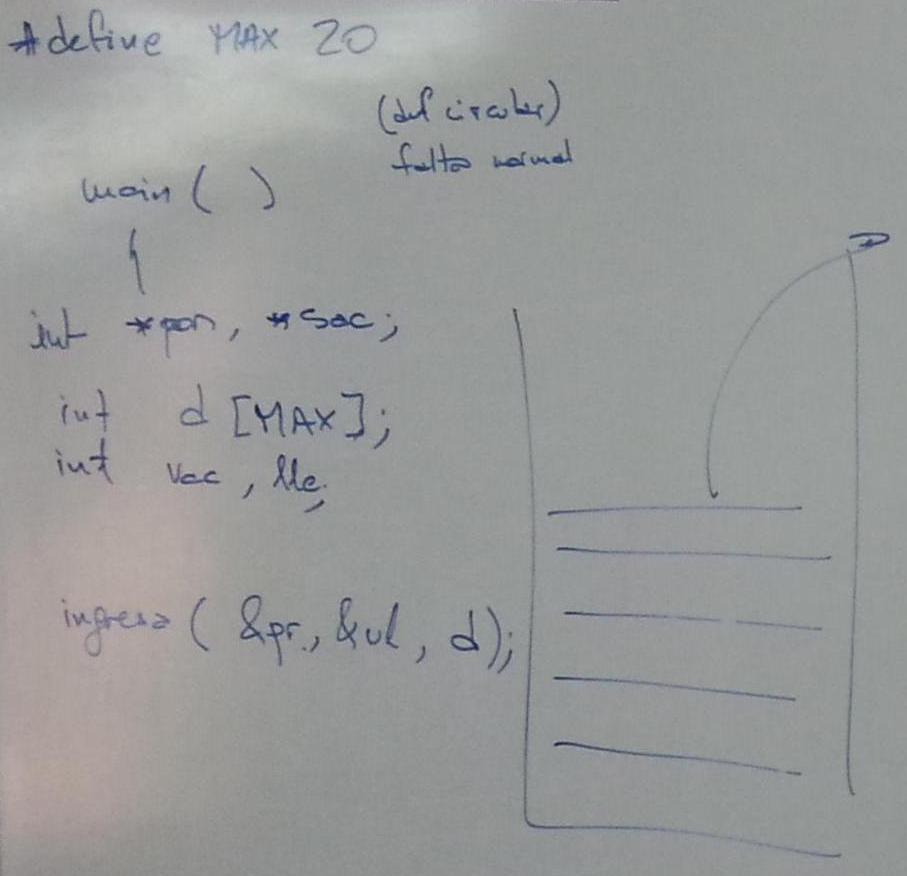 #define MAX 20
(def circular)
falta normal
main ( )
{
int *pon, *sac;
int d [MAX];
int vac, lle;
ingresa ( &pr, &ul, d);